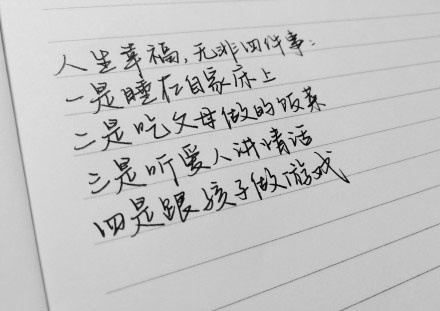 人生幸福,无非四件事:
一是睡在自家床上
二是吃父母做的饭菜
三是听爱人讲情话
四是跟孩子做游戏